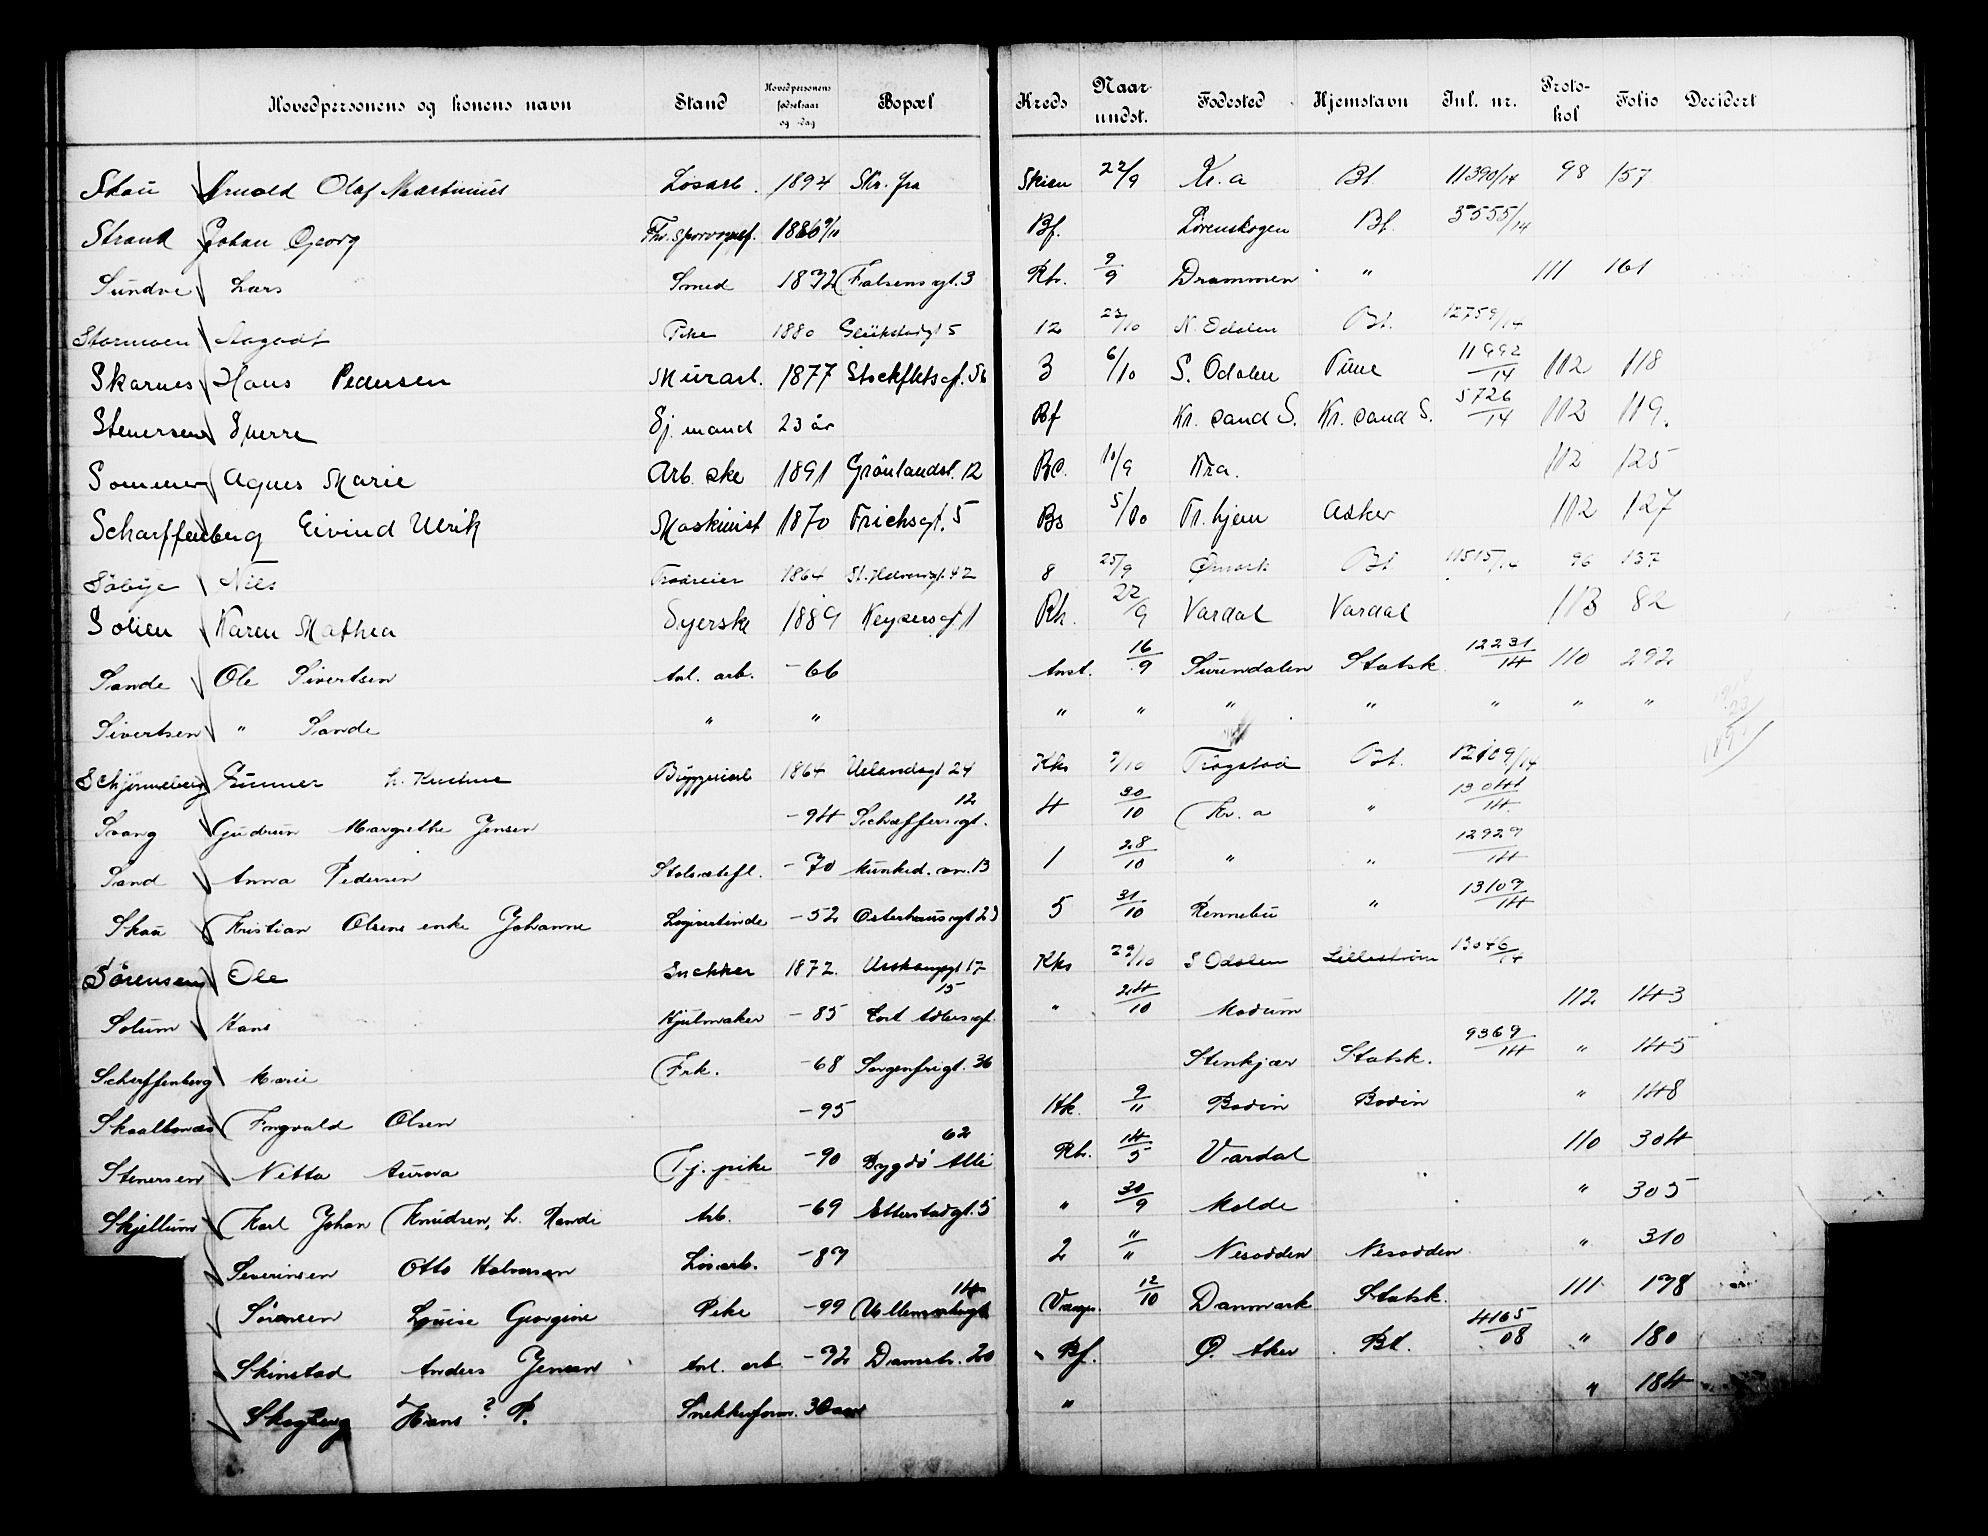 Hovedpersonens og konens navn Stand Hovedpersonens fødselsaar og -dag Bopæl Kreds Naar undst. Fødested Hjemstavn Inl. nr. Protokol Folio Decidert
Skau Arnold Olaf Martinius Løsarb. 1894 Skr. fra Skien 22/9 Kr.a Bt 11390/14 98 157
Strand Johan Georg 1886 9/10 Bf. Lørenskogen Bt. 3555/14
Sundve Lars Smed 1872 Falsensgt. 3 Rh. 9/9 Drammen " 111 161
Stormoen Aagodt Pike 1880 Glükstadgt 5 12 23/10 N. Odalen Bt. 12759/14
Skarnes Hans Pedersen Murarb. 1877 Stockfletsgt. 56 3 6/10 S. Odalen Tune 11992/14 112 118
Stenersen Sverre Sj. mand 23 år Bf Kr. sand S. Kr. sand S. 5726/14 112 119.
Sommer Agnes Marie Arb. ske 1891 Grønlandsl. 12 Bc. 10/9 Kra. 112 125
Scharffenberg Eivind Ulrik Maskinist 1870 Frichsgt. 5 Bs 5/10 Tr. hjem Asker 112 127
Søbye Nils Trædreier 1864 St. Halvardgt. 42 8 25/9 Ømark Bt 11515/14 96 137
Solien Karen Mathea Syerske 1889 Keysersgt. 1 Rh. 22/9 Vardal Vardal 113 82
Sande Ole Sivertsen Anl. arb. -66 Anst. 16/9 Surendalen Statsk. 12231/14 110 292
Sivertsen " Sande " " " " " " " " "
Schjønneberg Gunner h. Kristine Bryggeriarb 1864 Uelandsgt 24 Kks 2/10 Trøgstad Bt. 12109/14
Svang Gudrun Margrethe Jensen -94 Schæffersgt. 12 4 30/10 Kr.a " 13044/14.
Sand Anna Pedersen -70 Munked. vn. 13 1 28/10 " " 12929/14
Skau Kristian Olsens enke Johanne Logivertinde -52 Osterhausgt 23 5 31/10 Rennebu " 13109/14
Sørensen Ole Snekker 1872. Urskougsgt 17 Kks 29/10 S Odalen Lillestrøm 13046/14
Solum Hans Hjulmaker -85 Cort Adlersgt. 15 " 24/10 Modum 112 143
Scharffenberg Marie Frk. -68 Sorgenfrigt. 36 Stenkjær Statsk. 9369/14 " 145
Ingvald Olsen -95 Hk. 9/11 Bodin Bodin " 148
Stenersen Netta Aurora Tj. pike -90 Bygdø Alle 62 Rh. 14/5 Vardal 110 304
Skjellum Karl Johan Knudsen, h. Randi Arb. -69 Etterstadgt. 5 " 30/9 Molde " 305
Severinsen Otto Halvorsen Løsarb. -87 2 "/" Nesodden Nesodden " 310
Sørensen Louise Georgine Pike -99 14 12/10 Danmark Statsk. 111 178
Skinstad Anders Jensen Anl. arb. -72 Damstr. 20 Bf. Ø. Aker Bt. 4165/08 " 180
Skogberg Hans ? P. Snekkerform. 30 aar " " 184